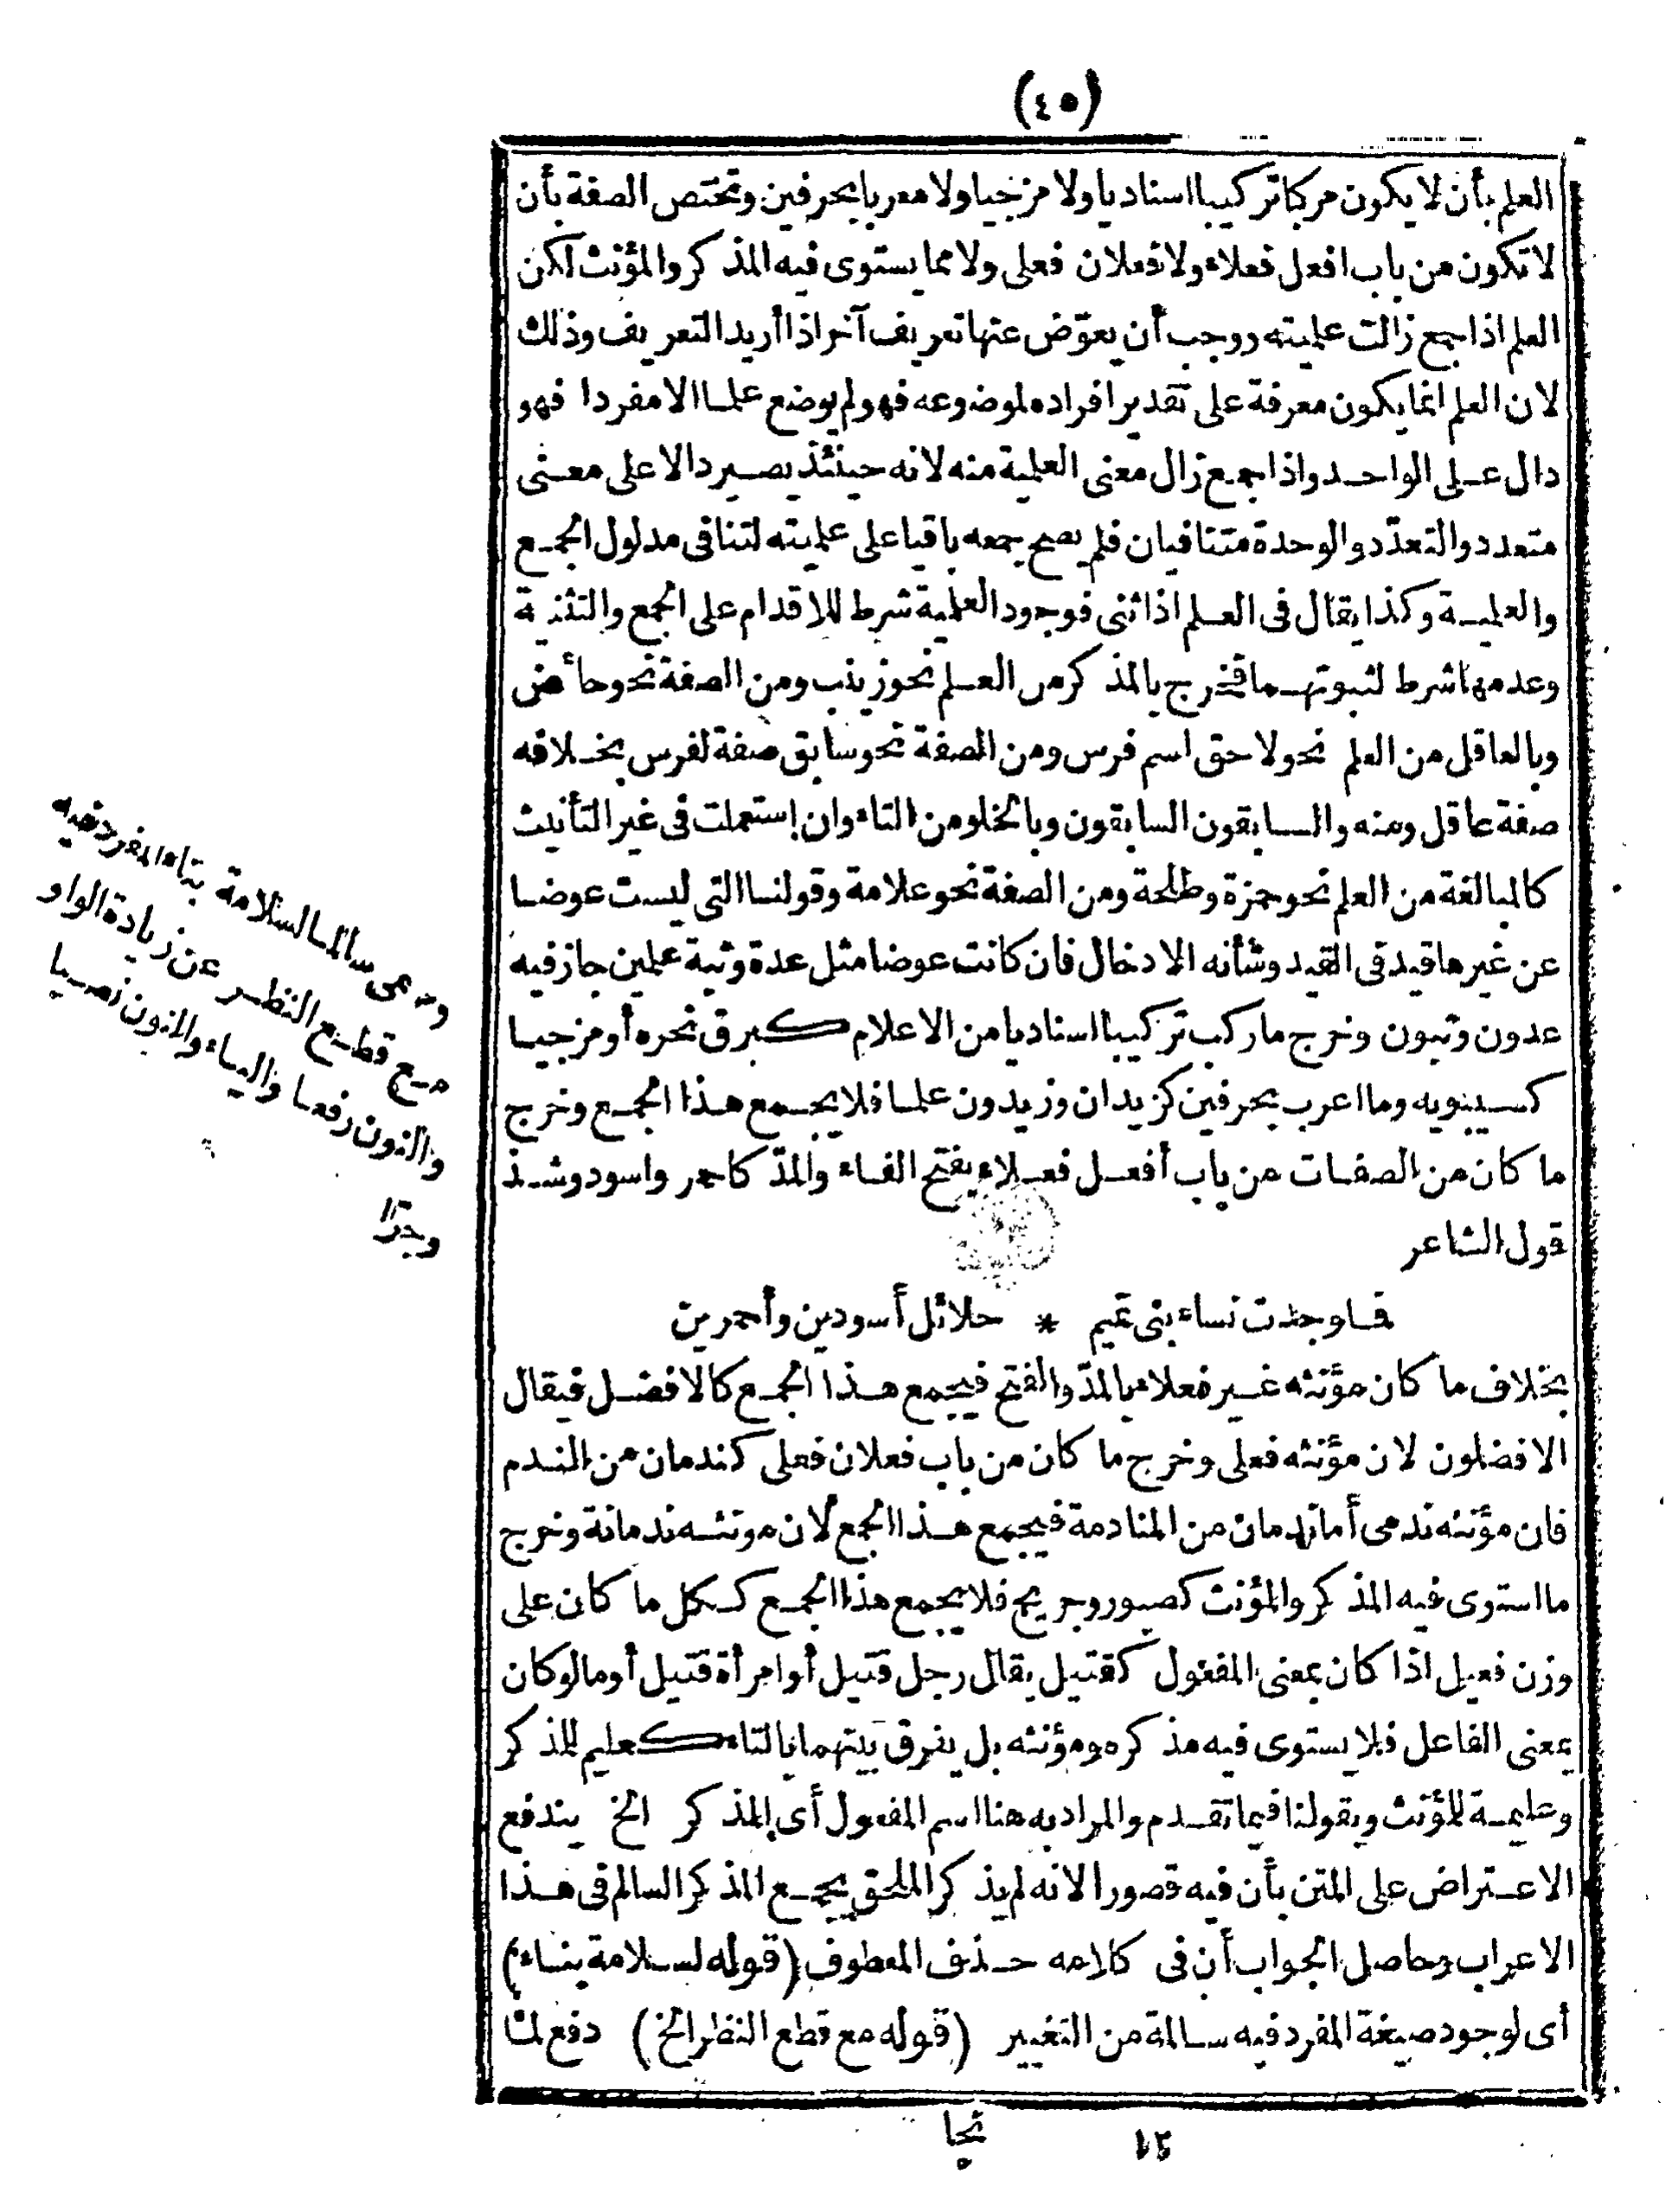 (٤٥)
العلم بأن لا يكون مركبا تركيبا اسناديا ولا مزجيا ولا معربا بحرفين وتختص الصفة بأن
لا تكون من باب افعل فعلاء ولا فعلان فعلى ولا مما يستوى فيه المذكر والمؤنث لكن
العلم اذا جمع زالت علميته ووجب أن يعوّض عنها تعريف آخر اذا أريد التعريف وذلك
لان العلم انما يكون معرفة على تقدير افراده لموضوعه فهو لم يوضع علما الا مفردا فهو
دال على الواحد واذا جمع زال معنى العلمية منه لانه حينئذ يصير دالا على معنى
متعدد والتعدّد والوحدة متنافيان فلم يصح جمعه باقيا على علميته لتنافى مدلول الجمع
والعلمية وكذا يقال فى العلم اذا ثنى فوجود العلمية شرط للاقدام على الجمع والتثنية
وعدمها شرط لثبوتهما فخرج بالمذكر من العلم نحو زينب ومن الصفة نحو حائض
وبالعاقل من العلم نحو لاحق اسم فرس ومن الصفة نحو سابق صفة لفرس بخلافه
صفة عاقل ومنه والسابقون السابقون وبالخلو من التاء وان إستعملت فى غير التأنيث
كالمبالغة من العلم نحو حمزة وطلحة ومن الصفة نحو علامة وقولنا التى ليست عوضا
عن غيرها قيد فى القيد وشأنه الادخال فان كانت عوضا مثل عدة وثبة علمين جاز فيه
عدون وثبون وخرج ما ركب تركيبا اسناديا من الاعلام كبرق نحره أو مزجيا
كسيبويه وما اعرب بحرفين كزيدان وزيدون علما فلا يجمع هذا الجمع وخرج
ما كان من الصفات من باب أفعل فعلاء بفتح الفاء والمدّ كاحمر واسود وشذ
قول الشاعر
فما وجدت نساء بنى تميم * حلائل أسودين وأحمرين
بخلاف ما كان مؤنثه غير فعلاء بالمدّ والفتح فيجمع هذا الجمع كالافضل فيقال
الافضلون لان مؤنثه فعلى وخرج ما كان من باب فعلان فعلى كندمان من الندم
فان مؤنثه ندمى أما ندمان من المنادمة فيجمع هذا الجمع لأن مونثه ندمانة وخرج
ما استوى فيه المذكر والمؤنث كصبور وجريح فلا يجمع هذا الجمع ككل ما كان على
وزن فعيل اذا كان بمعنى المفعول كقتيل يقال رجل قتيل أو امرأة قتيل أو ما لو كان
بمعنى الفاعل فلا يستوى فيه مذكره ومؤنثه بل يفرق بينهما بالتاء كعليم للمذكر
وعليمة للمؤنث وبقولنا فيما تقدم والمراد به هنا اسم المفعول أى المذكر الخ يندفع
الاعتراض على المتن بأن فيه قصورا لانه لم يذكر الملحق بجمع المذكر السالم فى هذا
الاعراب وحاصل الجواب أن فى كلامه حذف المعطوف (قوله لسلامة بناء)
أى لوجود صيغة المفرد فيه سالمة من التغيير (قوله مع قطع النظر الخ) دفع لما
١٢ نجا
وسمى سالما لسلامة بناء المفرد فيه
مع قطع النظر عن زيادة الواو
والنون رفعا والياء والنون نصبا
وجرّا